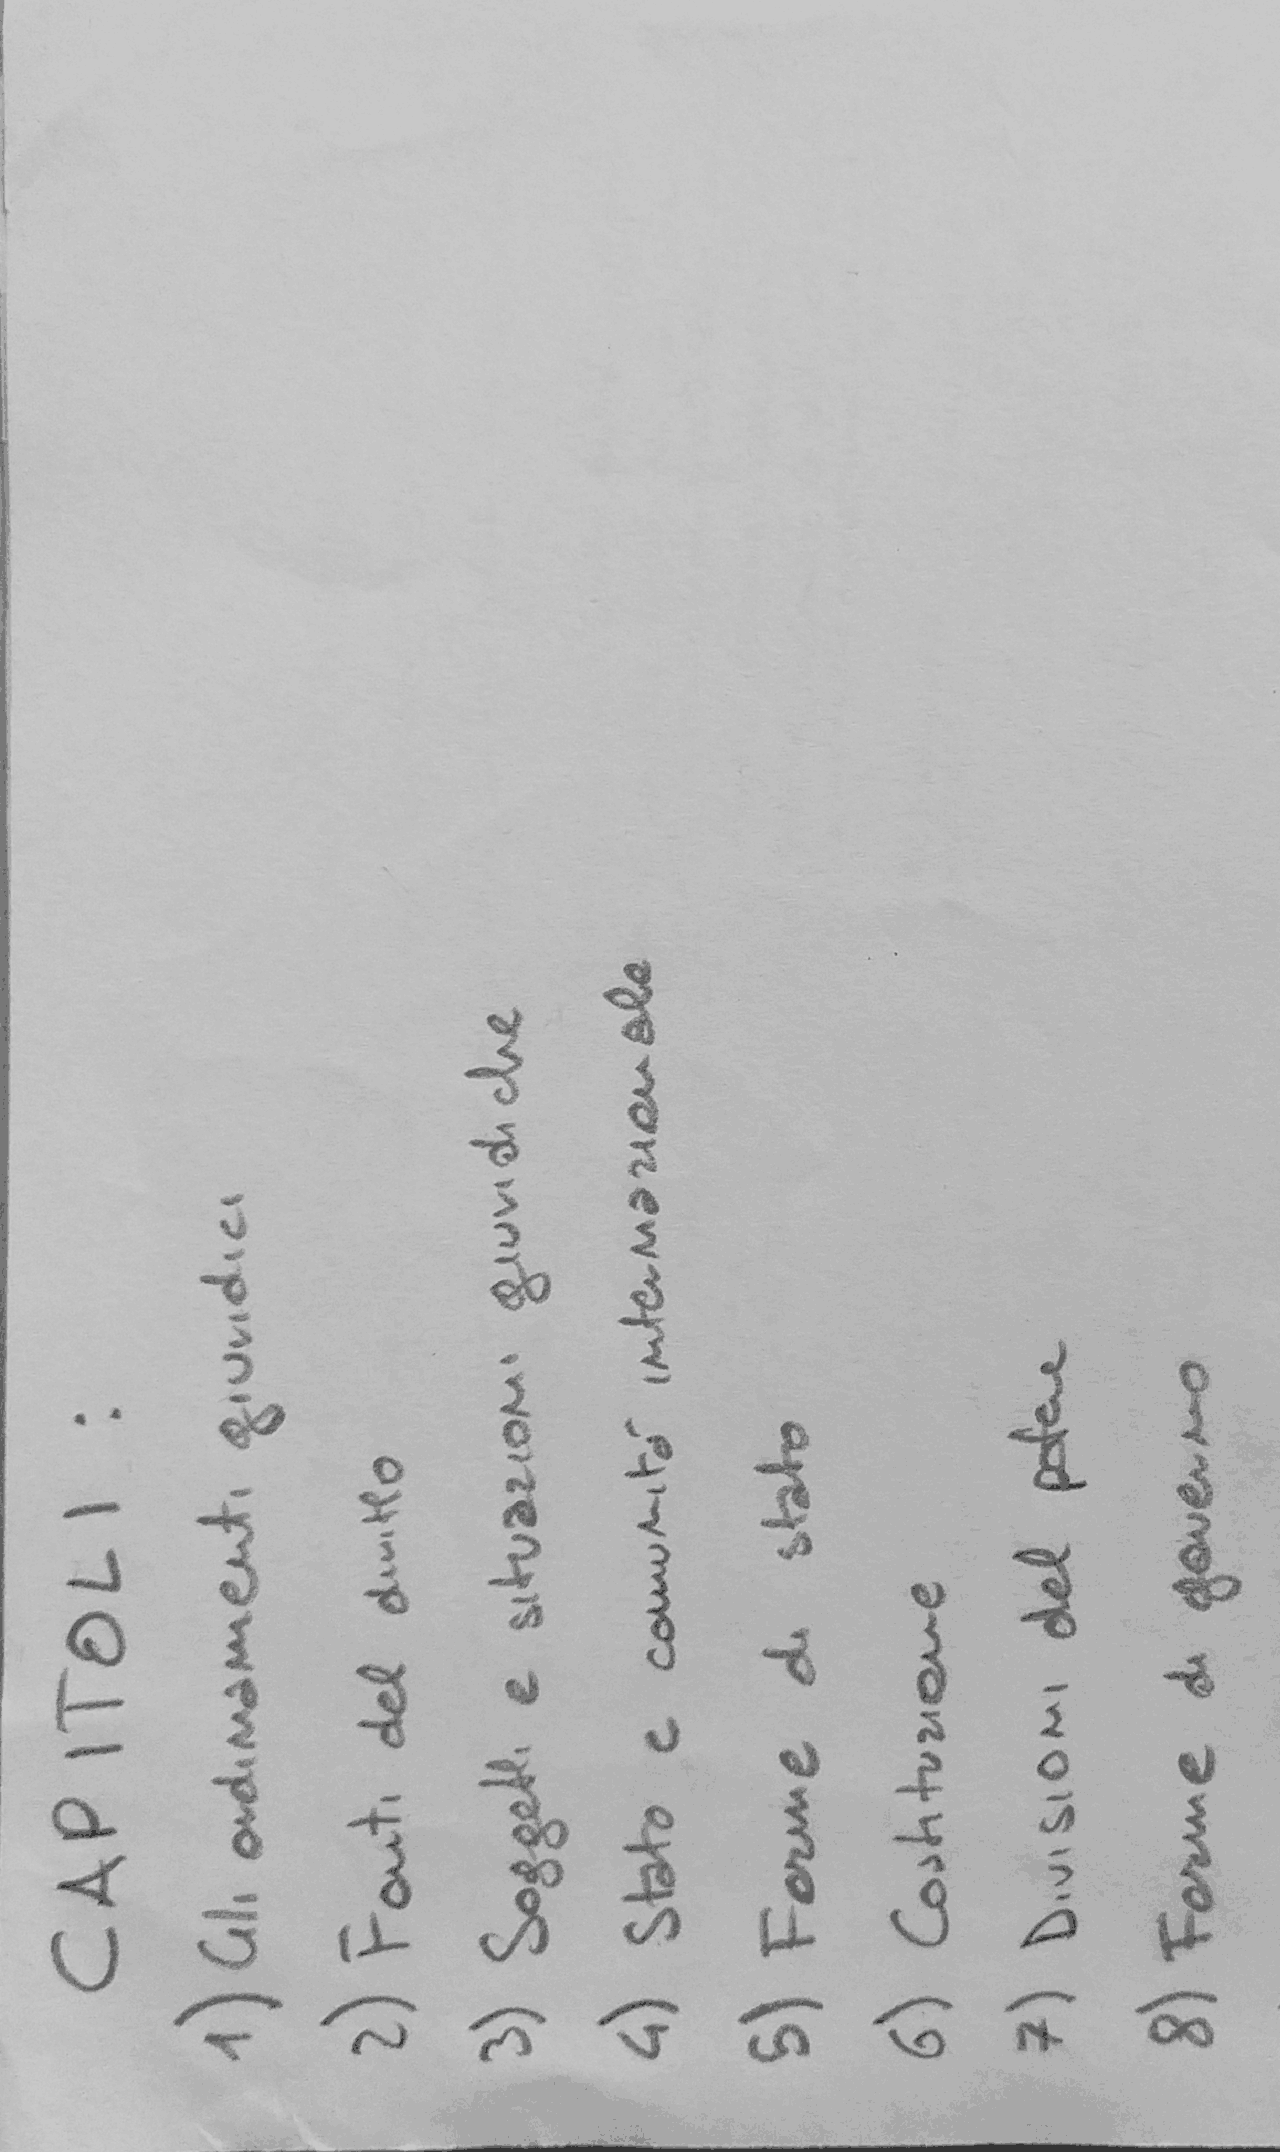 CAPITOLI :
1) Gli ordinamenti giuridici
2) Fonti del diritto
3) Soggetti e situazioni giuridiche
4) Stato e comunità internazionale
5) Forme di stato
6) Costituzione
7) Divisioni del potere
8) Forme di governo